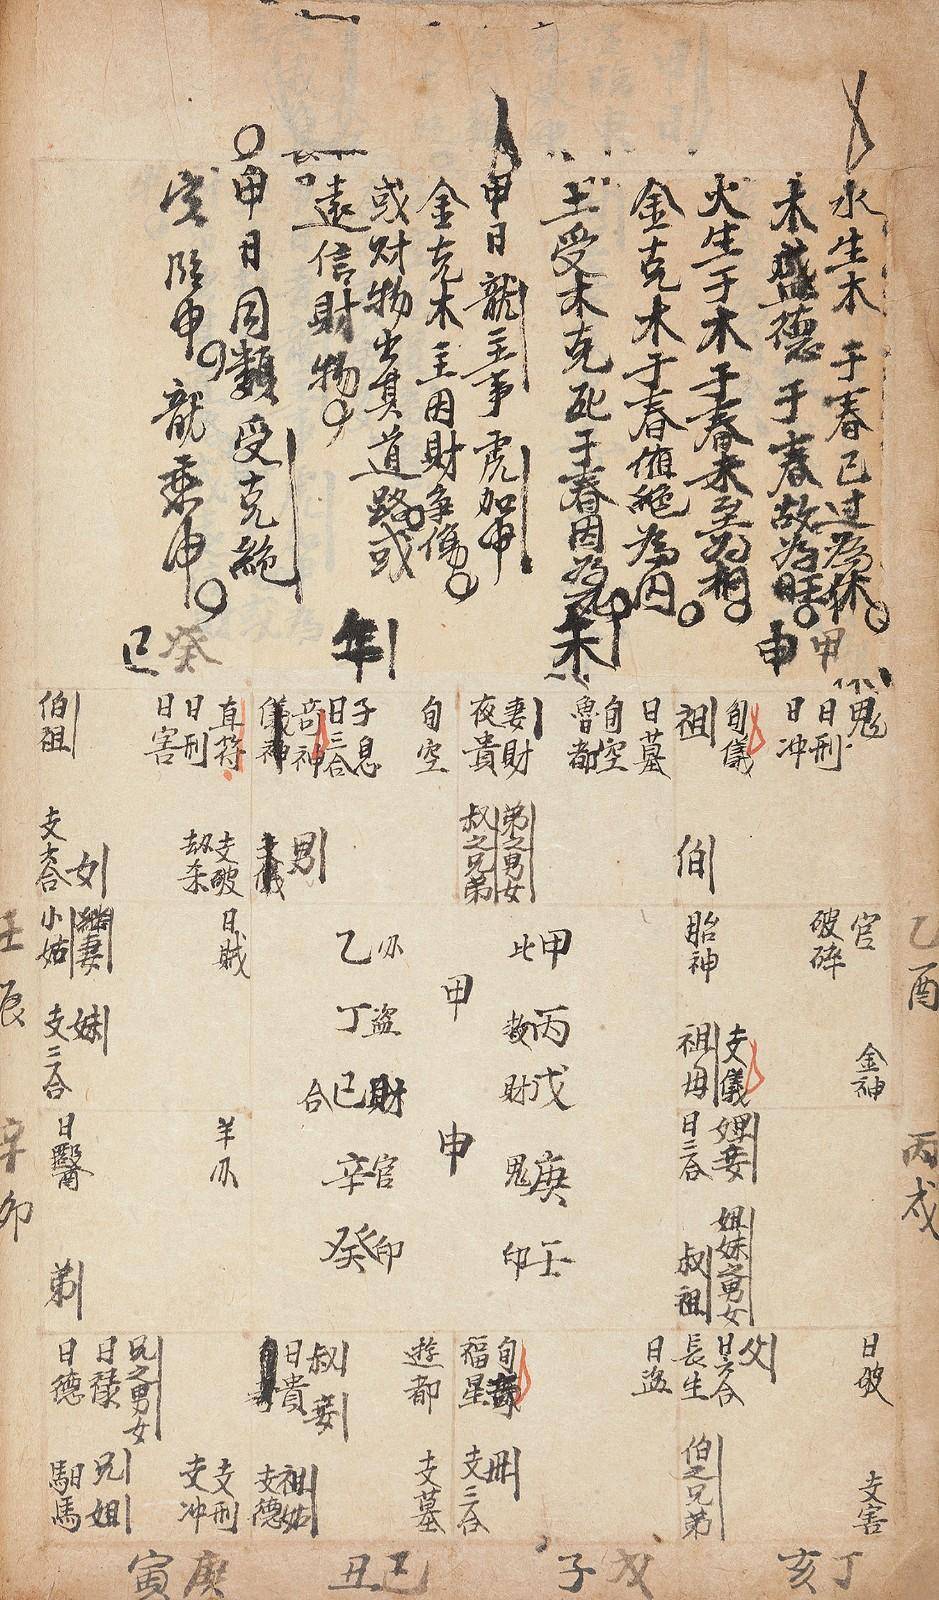 水生木于春已过為休
木盛德于春故為旺
火生于木于春未至為相
金克木于春值絕為囚
土受木克死于春因為死
甲日龍主事虎加申
金克木主因財爭傷
或財物出其道路或
遠信財物
甲日同類受克絕
宅臨申龍乘申
甲申
未
午
癸巳
鬼
日刑
日冲
旬儀
祖
日墓
旬空
魯都
妻財
夜貴
旬空
子息
日三合
奇神
儀神
直符
日刑
日害
伯祖
伯
弟之男女
叔之兄弟
男
支破
劫杀
女
支六合
乙酉
官
破碎
胎神
甲丙戊庚壬
此
財
鬼
印
甲申
盜財官印
乙丁己辛癸
合
日賊
小姑
妹
支三合
壬辰
金神
支儀
祖母
丙戌
婢妾
日三合
姐妹之男女
叔祖
羊刃
日醫
弟
辛卯
日破
父
日六合
長生
日盜
旬
福星
遊都
叔妾
日貴
兄之男女
日祿
日德
支害
伯之兄弟
支三合
支墓
祖姑
支德
支刑
支冲
兄姐
馹馬
丁亥
戊子
己丑
庚寅